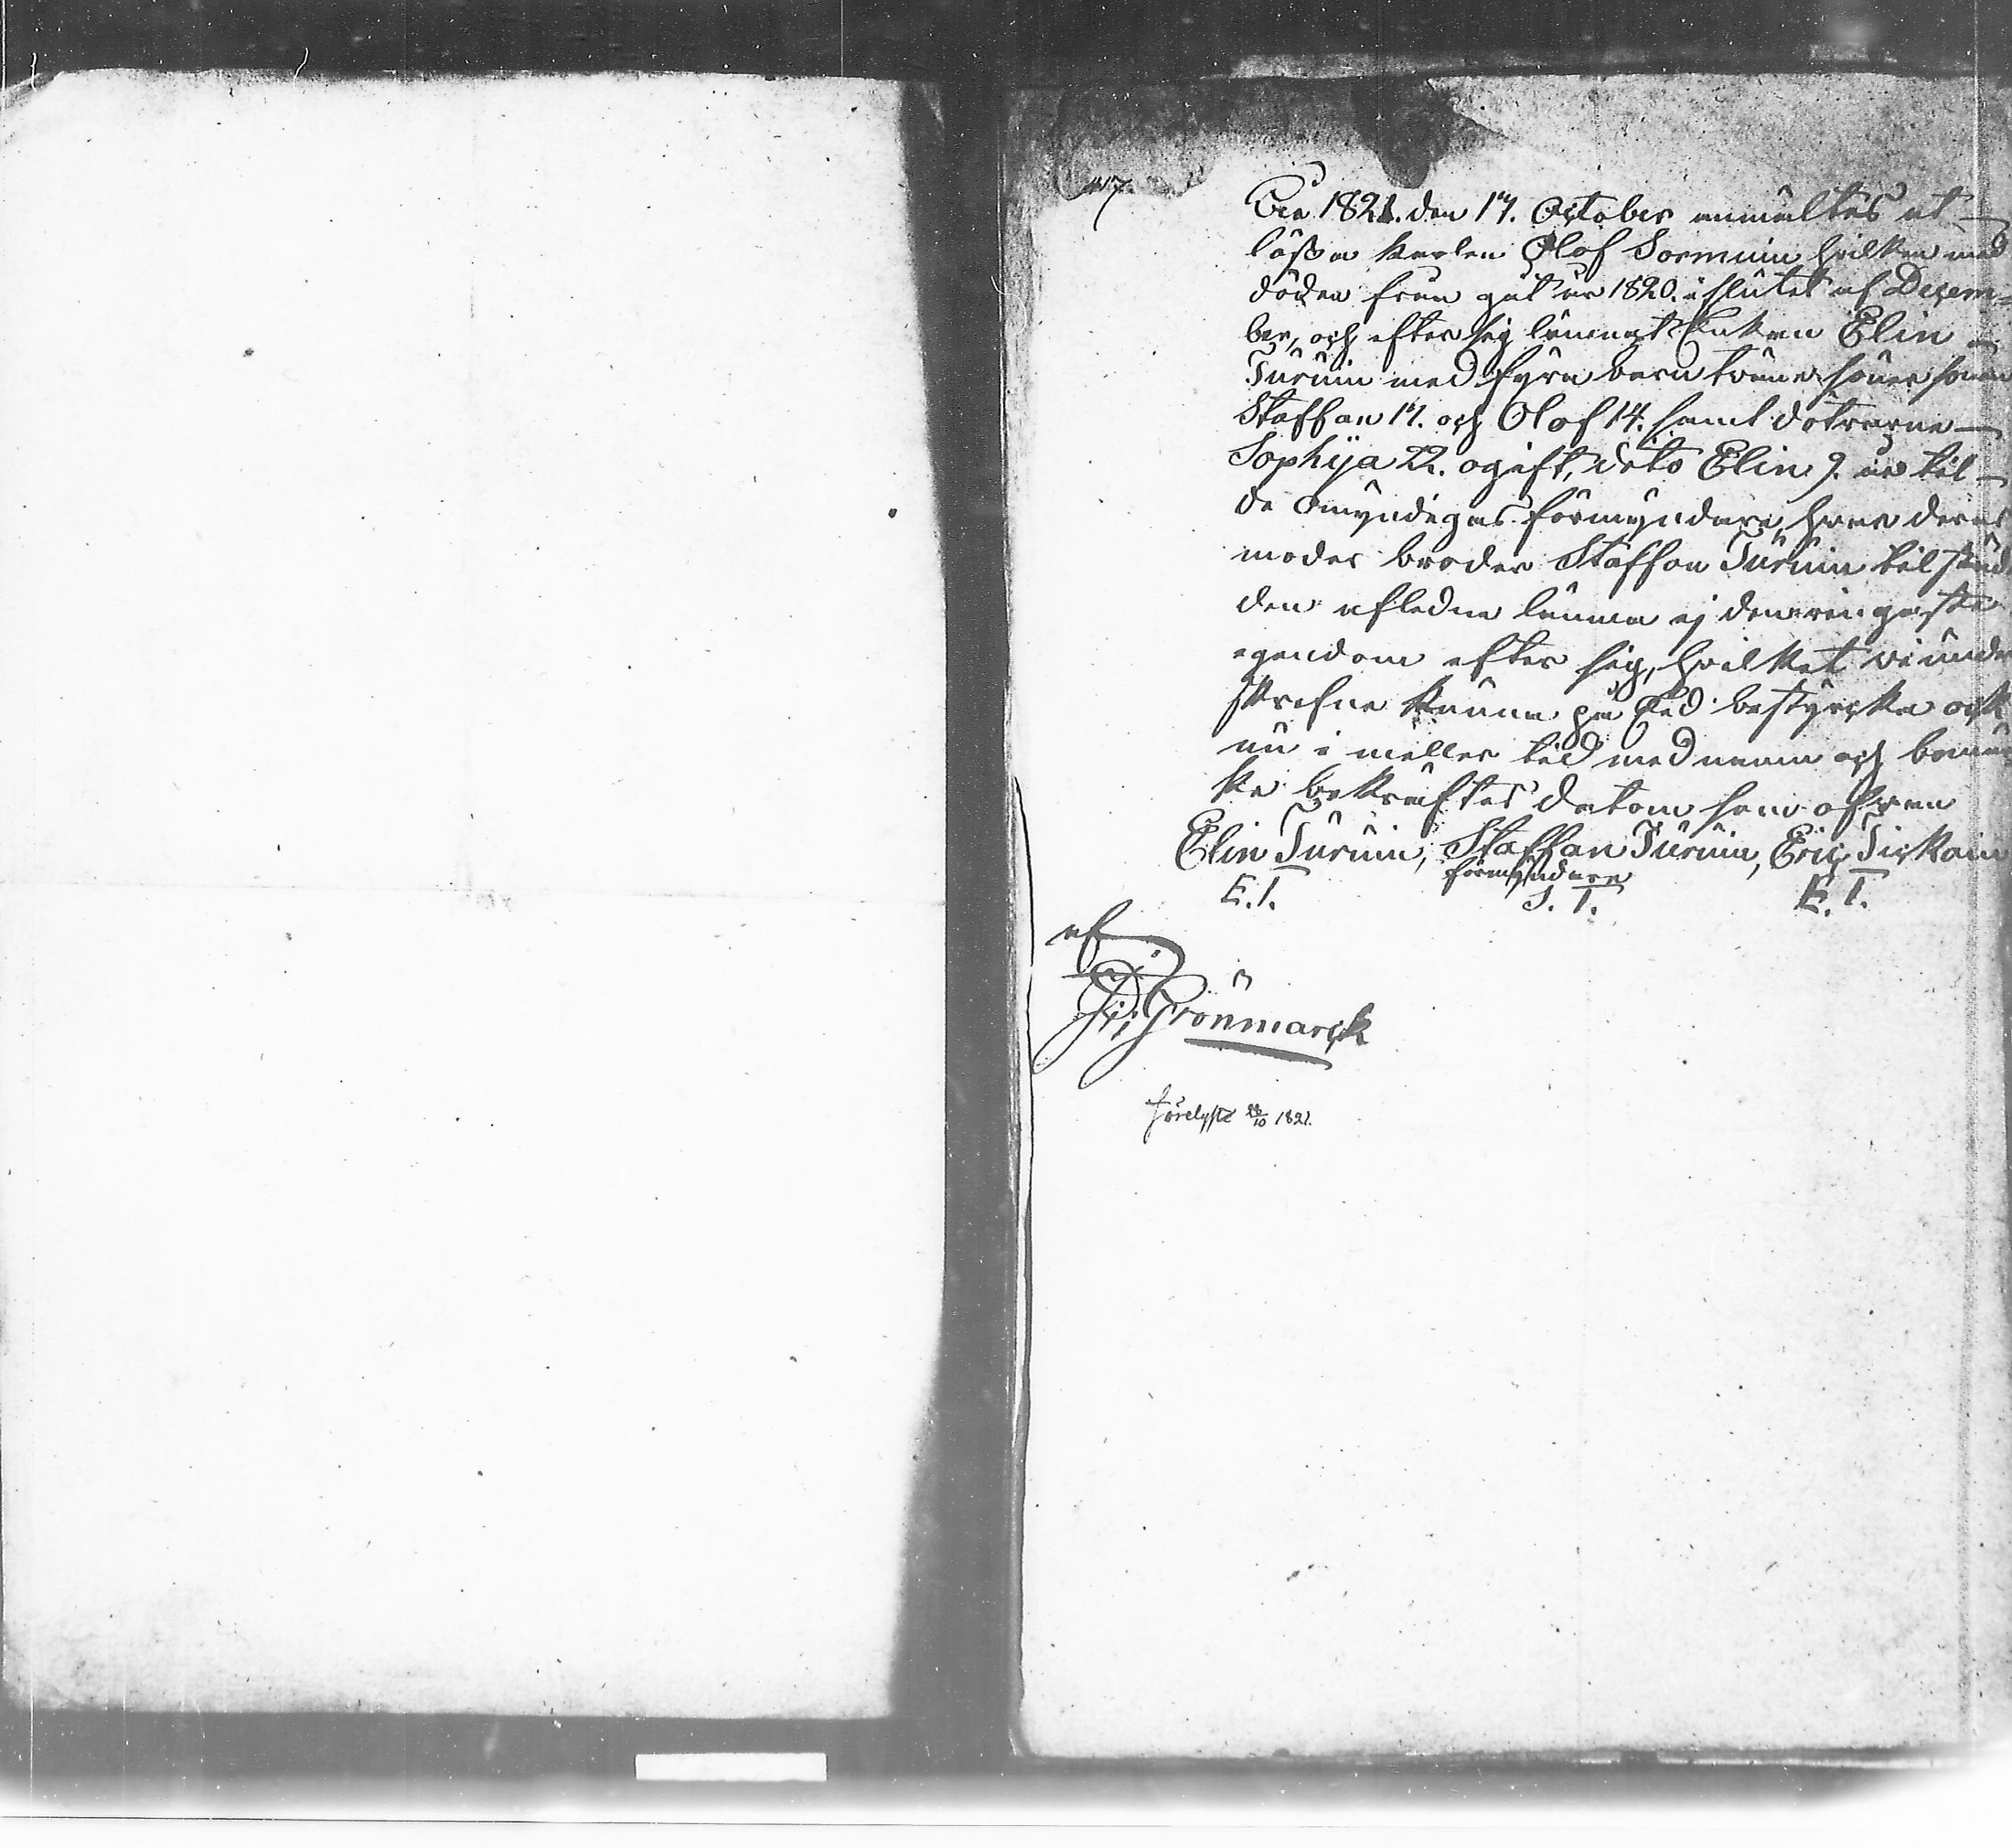 417.
Åhr 1821. den 17. October anmältes at
lössa karlen Olof Sormuin hvilken med
döden från gåt år 1820. i slutet af Decem=
ber, och efter sig lämnat Enkan Elin
Turuin med fyra barn tväne söner som
Staffan 17. och Olof 14. samt dötrarne
Sophija 22. ogift, dito Elin 9. år til
de omyndigas förmyndare, hvar deras
moder broder Staffan Turuin til städ
den afledne lämna ej den ringaste
egendom efter sig, hvilket vi under
skrefne kunna på Ed bestyrcka och
nu i meller tid med namn och bomär
ke bekräftes datom som ofvan
Elin Turuin, Staffan Turuin, Eric Tickain
förmyndare
E.T. S.T. E.T.
af
Grönmarck
Företyste 23/10 1821.